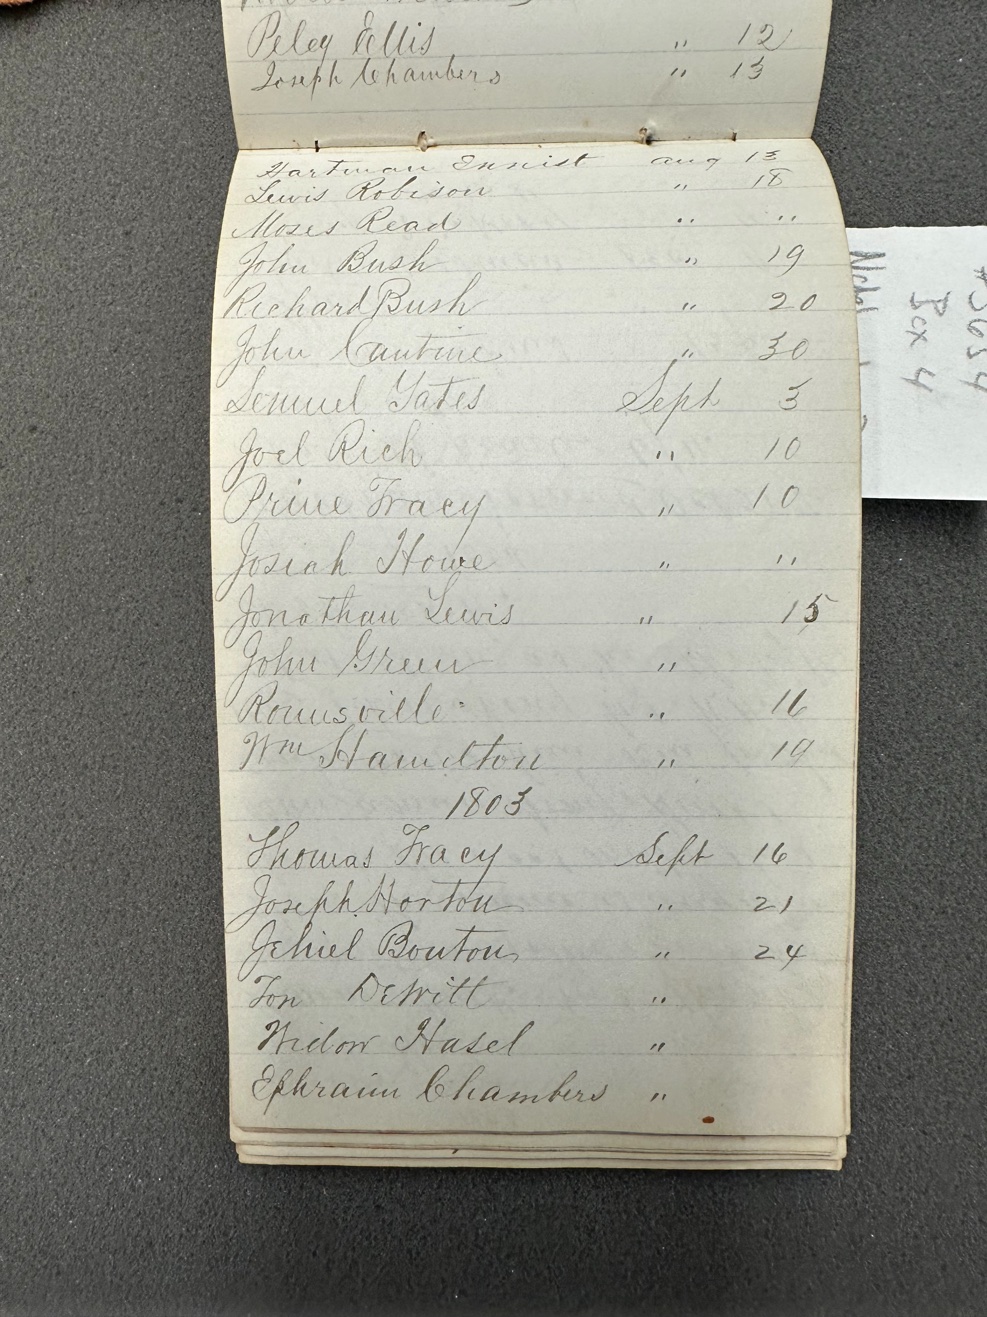 Peleg Ellis " 12
Joseph Chambers " 13
Hartman Ennist aug 13
Lewis Robison " 18
Moses Read " "
John Bush " 19
Richard Bush " 20
John Cantine " 30
Lemuel Yates Sept 3
Joel Rich " 10
Prine Tracy " 10
Josiah Howe " "
Jonathan Lewis " 15
John Green "
Romusville " 16
Wm Hamilton " 19
1803
Thomas Tracy Sept 16
Joseph Horton " 21
Jehiel Bouton " 24
Ton DeWitt "
Widow Hasel "
Ephraim Chambers "
Box 4